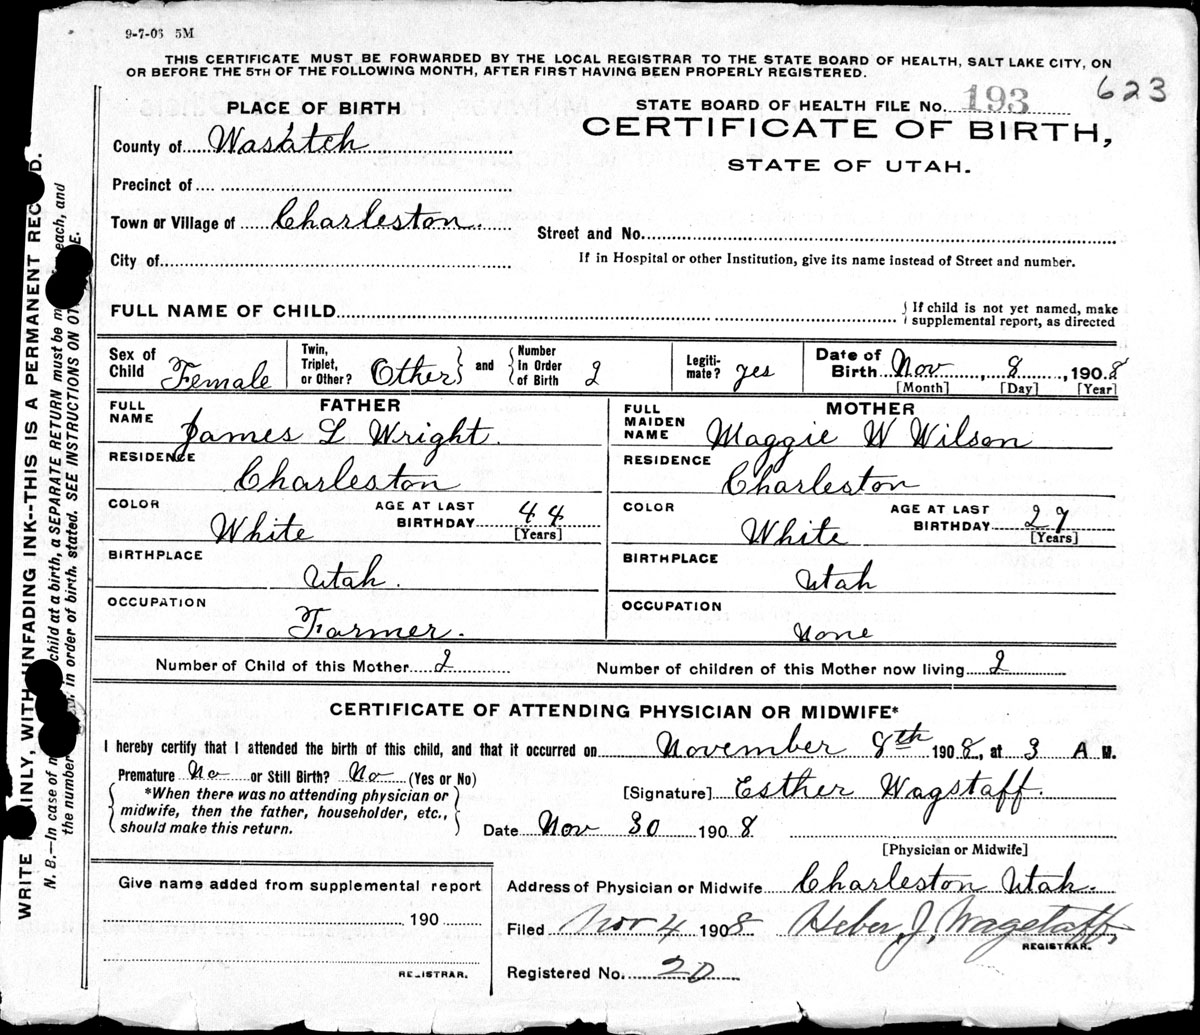 9-7-06 5M
THIS CERTIFICATE MUST BE FORWARDED BY THE LOCAL REGISTRAR TO THE STATE BOARD OF HEALTH, SALT LAKE CITY, ON
OR BEFORE THE 5TH OF THE FOLLOWING MONTH, AFTER FIRST HAVING BEEN PROPERLY REGISTERED.
623
PLACE OF BIRTH
STATE BOARD OF HEALTH FILE No. 193
CERTIFICATE OF BIRTH,
County of Wasatch
STATE OF UTAH.
Precinct of
Town or Village of Charleston.
Street and No.
City of
If in Hospital or other Institution, give its name instead of Street and number.
FULL NAME OF CHILD
{ If child is not yet named, make
supplemental report, as directed
Sex of Child Female
Twin, Triplet, or Other? Other } and { Number in Order of Birth 2
Legiti-mate? yes
Date of Birth Nov, 8, 1908
[Month] [Day] [Year]
FATHER
FULL NAME James L Wright.
RESIDENCE Charleston
COLOR White
AGE AT LAST BIRTHDAY 44 [Years]
BIRTHPLACE Utah.
OCCUPATION Farmer.
MOTHER
FULL MAIDEN NAME Maggie W Wilson
RESIDENCE Charleston
COLOR White
AGE AT LAST BIRTHDAY 27 [Years]
BIRTHPLACE Utah
OCCUPATION None
Number of Child of this Mother 2
Number of children of this Mother now living 2
CERTIFICATE OF ATTENDING PHYSICIAN OR MIDWIFE*
I hereby certify that I attended the birth of this child, and that it occurred on November 8th 1908, at 3 A M.
Premature No or Still Birth? No (Yes or No)
{ *When there was no attending physician or
midwife, then the father, householder, etc.,
should make this return. }
[Signature] Esther Wagstaff.
Date Nov 30 1908
[Physician or Midwife]
Give name added from supplemental report
190
REGISTRAR.
Address of Physician or Midwife Charleston Utah.
Filed Nov 4 1908 Heber J. Wagstaff,
REGISTRAR.
Registered No. 20
WRITE PLAINLY, WITH UNFADING INK--THIS IS A PERMANENT RECORD.
N. B.—In case of child at a birth, a SEPARATE RETURN must be each, and
the number in order of birth, stated. SEE INSTRUCTIONS ON